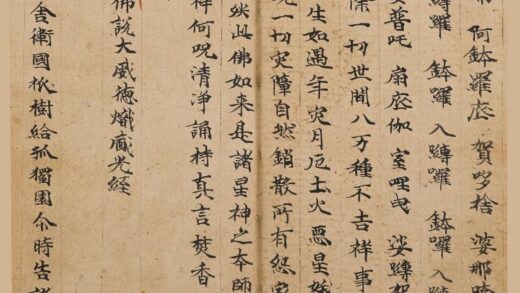 阿鉢羅底 賀哆捨 娑那
嚩囉 鉢囉 入嚩囉 鉢囉 入嚩
娑普吒 扇底伽 室哩曳 娑嚩賀
除一切世間八万種不吉祥事
生如遇年灾月厄土火惡星妖
一切灾障自然銷散所有怨家
然此佛如来是諸星神之本師
祥何呪清淨誦持真言焚香
佛說大威德熾盛光経
舍衛國祇樹給孤獨園尒時告諸